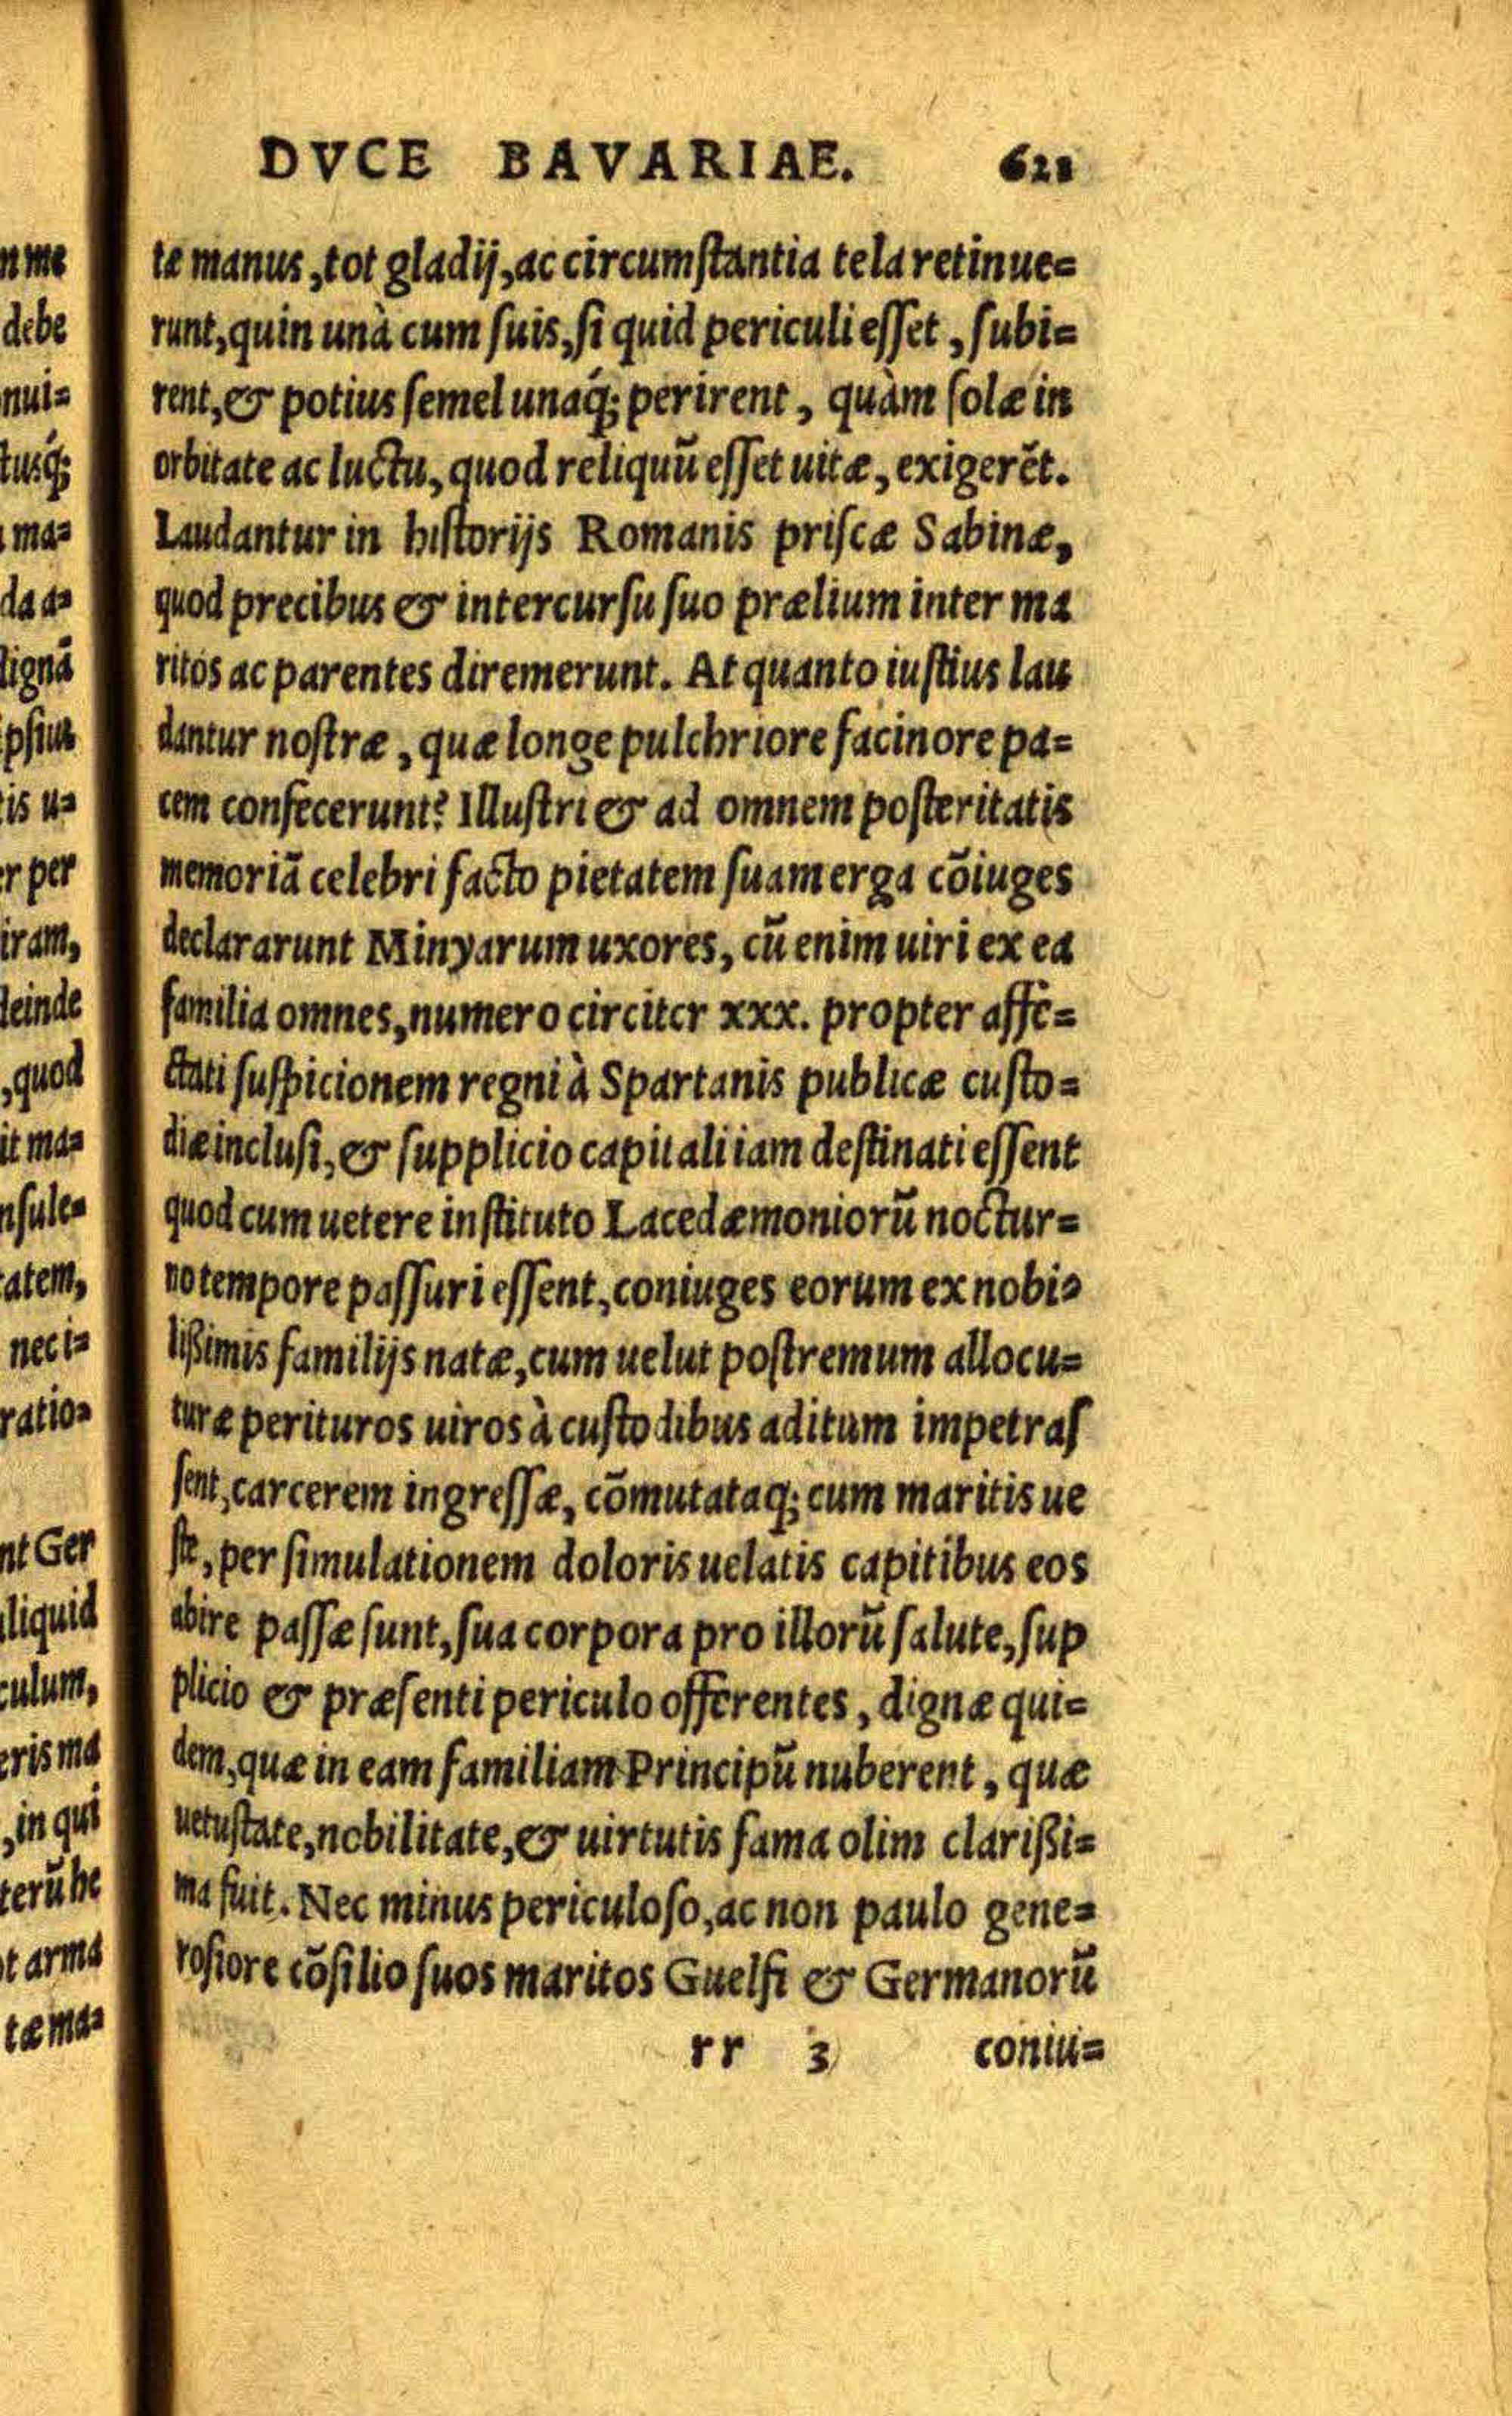 DVCE BAVARIAE. 621
tæ manus, tot gladij, ac circumſtantia tela retinue=
runt, quin unà cum ſuis, ſi quid periculi eſſet, ſubi=
rent, & potius ſemel unaq́; perirent, quàm ſolæ in
orbitate ac luctu, quod reliquũ eſſet uitæ, exigerẽt.
Laudantur in hiſtorijs Romanis priſcæ Sabinæ,
quod precibus & intercurſu ſuo prælium inter ma
ritos ac parentes diremerunt. At quanto iuſtius lau
dantur noſtræ, quæ longe pulchriore facinore pa=
cem confecerunt? Illuſtri & ad omnem poſteritatis
memoriã celebri facto pietatem ſuam erga cõiuges
declararunt Minyarum uxores, cũ enim uiri ex ea
familia omnes, numero circiter xxx. propter affe=
ctati ſuſpicionem regni à Spartanis publicæ cuſto=
diæ incluſi, & ſupplicio capitali iam deſtinati eſſent
quod cum uetere inſtituto Lacedæmoniorũ noctur=
no tempore paſſuri eſſent, coniuges eorum ex nobi=
lißimis familijs natæ, cum uelut poſtremum allocu=
turæ perituros uiros à cuſtodibus aditum impetraſ
ſent, carcerem ingreſſæ, cõmutataq; cum maritis ue
ſte, per ſimulationem doloris uelatis capitibus eos
abire paſſæ ſunt, ſua corpora pro illorũ ſalute, ſup
plicio & præſenti periculo offerentes, dignæ qui=
dem, quæ in eam familiam Principũ nuberent, quæ
uetuſtate, nobilitate, & uirtutis fama olim clarißi=
ma fuit. Nec minus periculoſo, ac non paulo gene=
roſiore cõſilio ſuos maritos Guelfi & Germanorũ
rr 3 coniu=